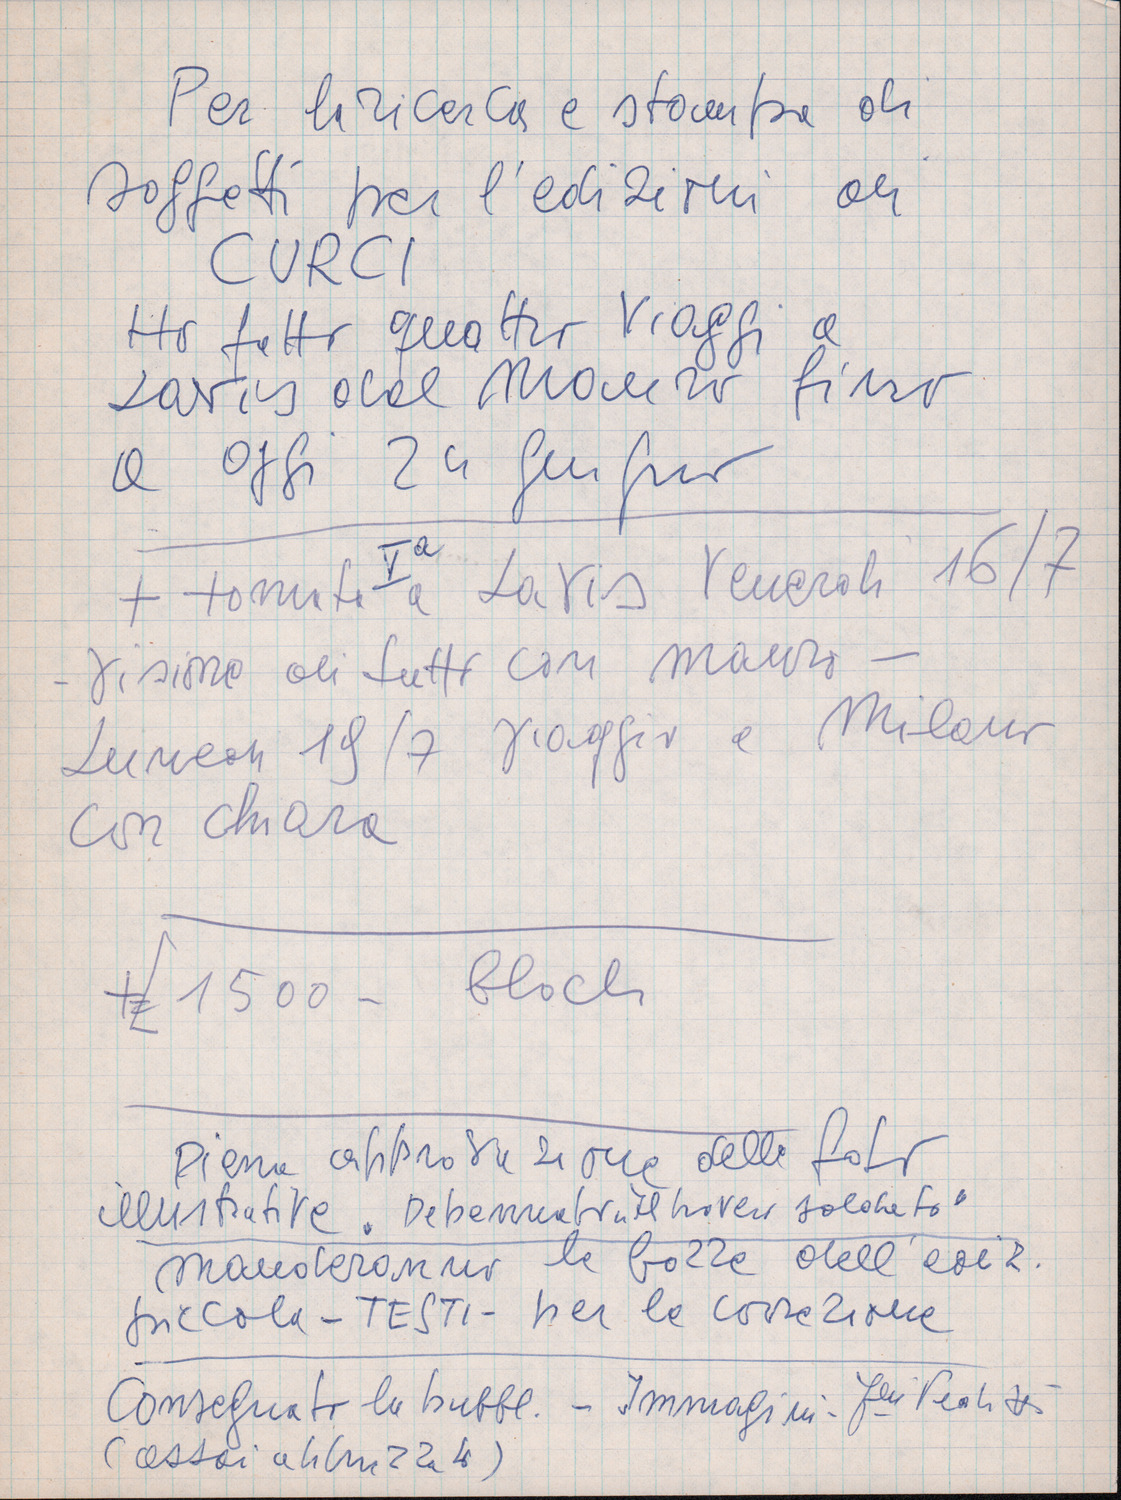 Per la ricerca e stampa di
soggetti per l'edizioni di
CURCI
Ho fatto quattro viaggi a
Lavis dal Mauro fino
a oggi 24 giugno
+ tornata Vª a Lavis Venerdi 16/7
- visione di tutto con mauro -
Lunedi 19/7 viaggio a Milano
con chiara
+ £ 1500 - block
Piena approvazione delle foto
illustrative. soldato"
manderanno le bozze dell'ediz.
piccola - TESTI - per la correzione
Consegnato la bubbl. - Immagini -
(assai abbozzato)